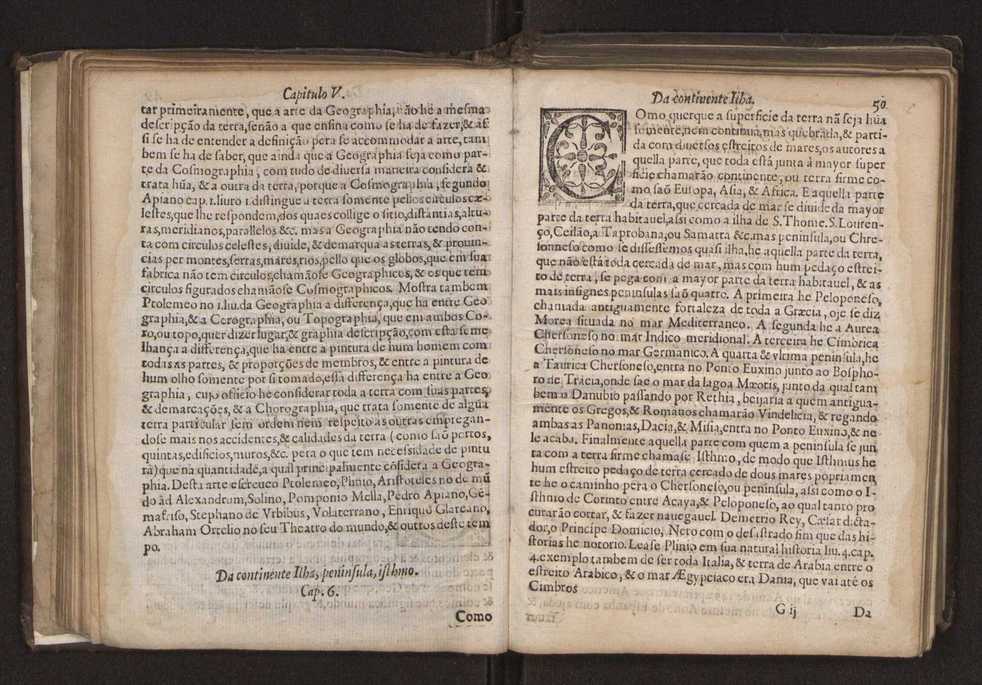 Capitulo V.
tar primeiramente, que a arte da Geographia, não he a mesma
descripção da terra, senão a que ensina como se ha de fazer, & aſ
si se ha de entender a definição pera se accommodar a arte, tam
bem se ha de saber, que ainda que a Geographia seja como par-
te da Cosmographia, com tudo de diversa maneira considera &
trata hũa, & a outra da terra, porque a Cosmographia, segundo
Apiano cap. 1. liuro 1. distingue a terra somente pellos circulos cæ-
lestes, que lhe respondem, dos quaes collige o sitio, distãtias, altu-
ras, meridianos, parallelos &c. mas a Geographia não tendo con-
ta com circulos celestes, diuide, & demarqua as terras, & prouin-
cias per montes, serras, mares, rios, pello que os globos, que em sua
fabrica não tem circulos, chamãose Geographicos, & os que tem
circulos figurados chamãose Cosmographicos. Mostra tambem
Ptolemeo no 1. liu. da Geographia a differença, que ha entre Geo
graphia, & a Corographia, ou Topographia, que em ambos Co-
ro, ou topo, quer dizer lugar, & graphia descripção, com esta se me
lhança a differença, que ha entre a pintura de hum homem com
todas as partes, & proporções de membros, & entre a pintura de
hum olho somente por si tomado, essa differença ha entre a Geo
graphia, cujo officio he considerar toda a terra com suas partes,
& demarcações, & a Chorographia, que trata somente de algũa
terra particular sem ordem nem respeito as outras empregan-
dose mais nos accidentes, & calidades da terra (como saõ portos,
quintas, edificios, muros, &c. pera o que tem necessidade de pintu
ra) que na quantidade, a qual principalmente cõsidera a Geogra-
phia. Desta arte escreueo Ptolemeo, Plinio, Aristoteles no de mũ
do ad Alexandrum, Solino, Pomponio Mella, Pedro Apiano, Ge-
mafriso, Stephano de Vrbibus, Volaterrano, Enriquo Glareano,
Abraham Ortelio no seu Theatro do mundo, & outros deste tem
po.
Da continente Ilha, peninsula, isthmo.
Cap. 6.
Como
Da continente Ilha. 50
COmo quer que a superficie da terra nã seja hũa
semente, nem continua, mas quebrada, & parti-
da com diuersos estreitos de mares, os autores a
quella parte, que toda está junta á mayor super
ficie chamarão continente, ou terra firme co-
mo saõ Europa, Asia, & Africa. E aquella parte
da terra, que cercada de mar se diuide da mayor
parte da terra habitauel, assi como a ilha de S. Thome. S. Louren-
ço, Ceilão, a Taprobana, ou Samatra &c. mas peninsula, ou Chre-
sonneso como se dissessemos quasi ilha, he aquella parte da terra,
que não está toda cercada de mar, mas com hum pedaço estrei-
to de terra, se pega com a mayor parte da terra habitauel, & as
mais insignes peninsulas saõ quatro. A primeira he Peloponeso,
chamada antiguamente fortaleza de toda a Græcia, oje se diz
Morea situada no mar Mediterraneo. A segunda he a Aurea
Chersoneso no mar Indico meridional. A terceira he Cimbrica
Chersoneso no mar Germanico. A quarta & vltima peninsula, he
a Taurica Chersoneso, entra no Ponto Euxino junto ao Bospho-
ro de Tracia, onde sae o mar da lagoa Mæotis, junto da qual tam
bem o Danubio passando por Rethia, beijaria a quem antigua-
mente os Gregos, & Romanos chamarão Vindelicia, & regando
ambas as Panonias, Dacia, & Misia, entra no Ponto Euxino, & ne
le acaba. Finalmente aquella parte com quem a peninsula se jun
ta com a terra firme chamase Isthmo, de modo que Isthmus he
hum estreito pedaço de terra cercado de dous mares propriamen
te he o caminho pera o Chersoneso, ou peninsula, assi como o I-
sthmo de Corinto entre Acaya, & Peloponeso, ao qual tanto pro
curarão cortar, & fazer nauegauel Demetrio Rey, Cæsar dicta-
dor, o Principe Domicio, Nero com o desestrado fim que das hi-
storias he notorio. Lease Plinio em sua natural historia liu. 4. cap.
4. exemplo tambem de ser toda Italia, & terra de Arabia entre o
estreito Arabico, & o mar Ægypciaco era Dania, que vai até os
Cimbros
G ij Da